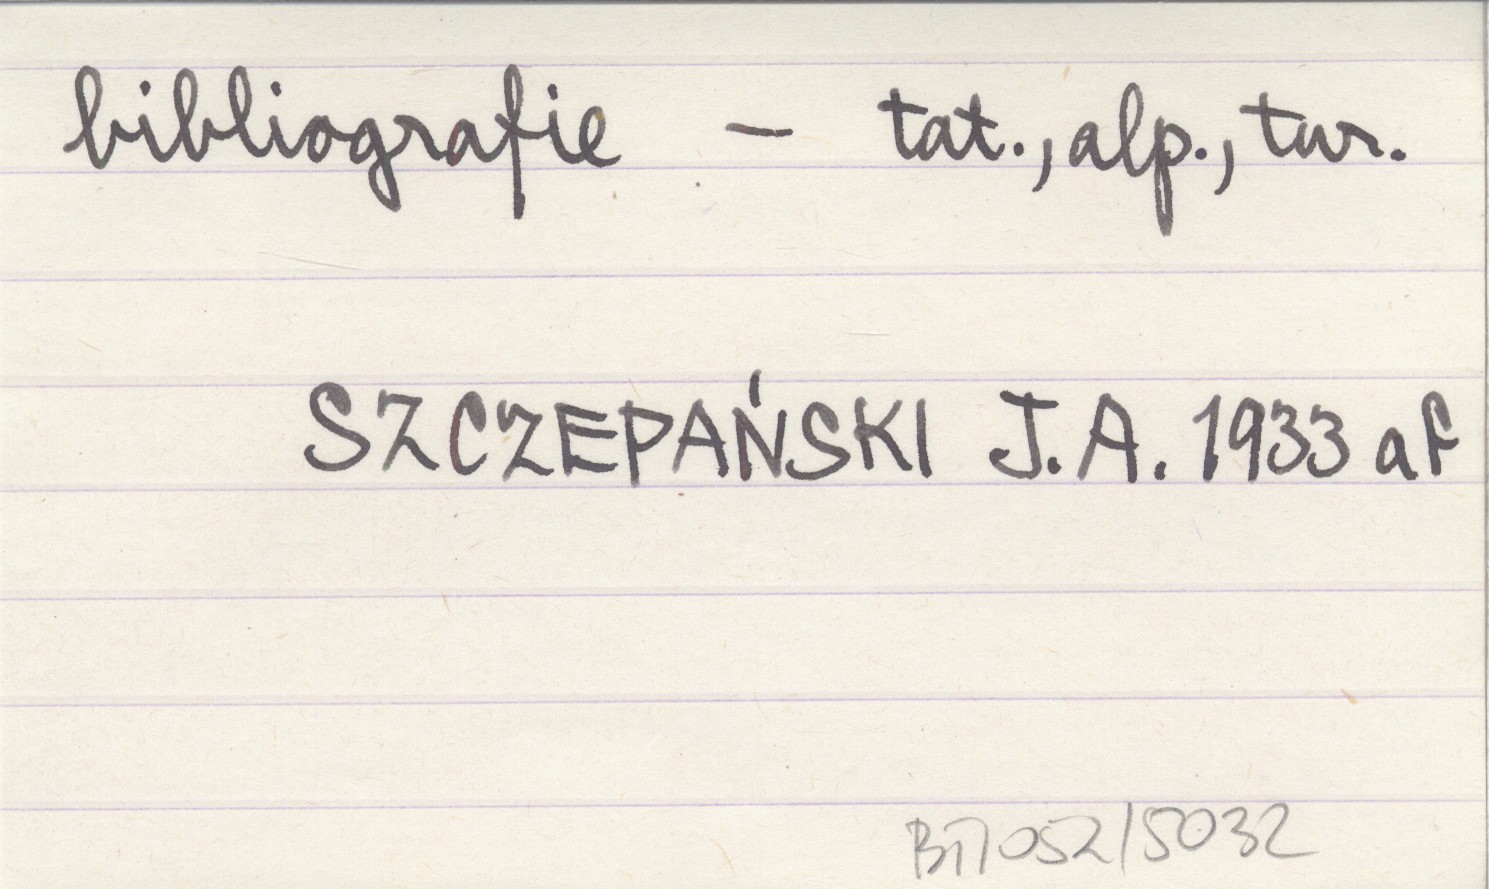 bibliografie – tat., alp., tur.
SZCZEPAŃSKI J.A. 1933 af
BT1052/5032